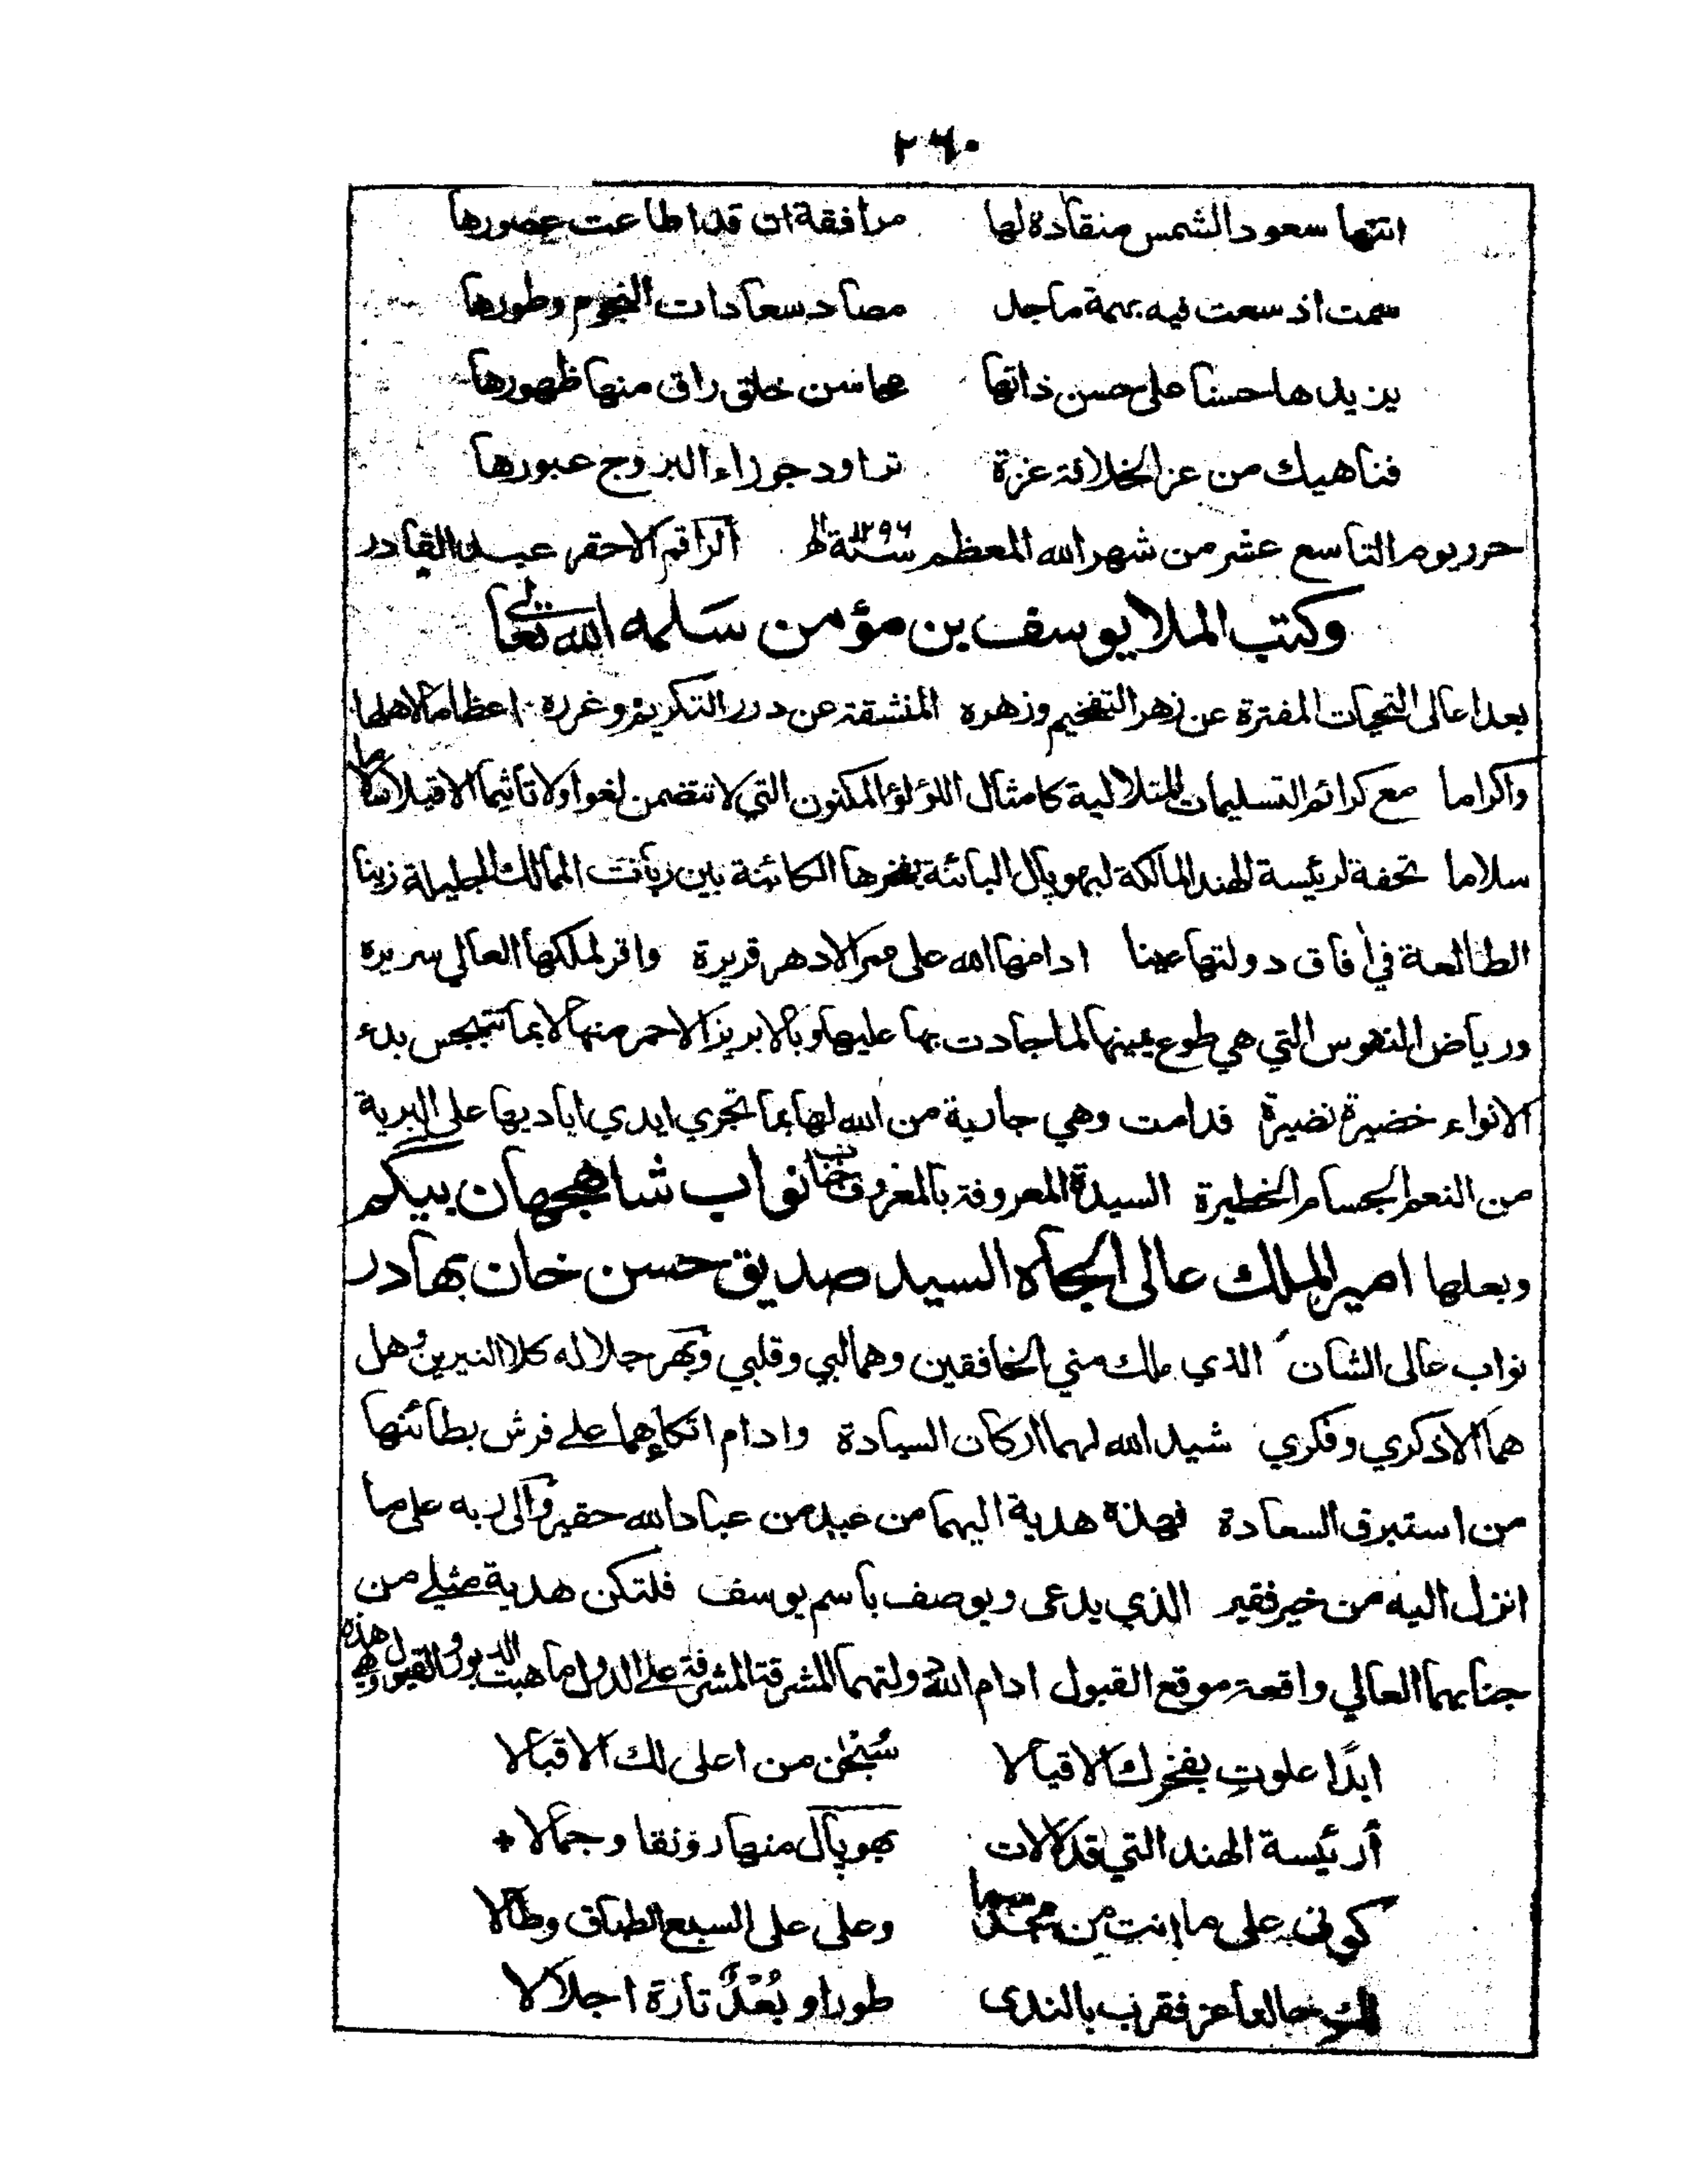 ٢٦٠
انتها سعود الشمس منقادة لها مرافقة ان قد اطاعت عصورها
سمت اذ سعت فيه بهمة ماجد مصاد سعادات النجوم وطورها
يزيدها حسنا على حسن ذاتها محاسن خلق راق منها ظهورها
فناهيك من عز الخلافة عزة تراود جوزاء البروج عبورها
حرر يوم التاسع عشر من شهر الله المعظم سنة ١٢٩٦ الراقم الاحقر عبد القادر
وكتب الملا يوسف بن مؤمن سلمه الله تعالى
بعد اعالى التحيات المفترة عن زهر التفخيم وزهره المنشقة عن درر التكريم وغرره اعظاما لاهلها
واكراما مع كرائم التسليمات المتلالية كامثال اللؤلؤ المكنون التي لا تتضمن لغوا ولا تاثيما الا قيلا سلاما
سلاما تحفة لرئيسة الهند المالكة لبهوپال البائنة بفخرها الكائنة بين ربات الممالك الجليلة زينا
الطالعة في آفاق دولتها عينا ادامها الله على ممر الادهر قريرة واقر لملكها العالي سريره
ورياض النفوس التي هي طوع يمينها لما جادت بها عليها وبالابريز الاحمر منها لا بما تتبجس بدء
الانواء خضيرة نضيرة فدامت وهي جارية من الله لها بما تجري ايدي اياديها على البرية
من النعم الجسام الخطيرة السيدة المعروفة بالمعروف جناب نواب شاهجهان بيگم
وبعلها امير الملك عالى الجاه السيد صديق حسن خان بهادر
نواب عالى الشان الذي ملك مني الخافقين وهما لبي وقلبي وبهر جلاله كلا النيرين وهل
هما الا ذكري وفكري شيد الله لهما اركان السيادة وادام اتكاءهما على فرش بطائنها
من استبرق السعادة فهذه هدية اليهما من عبد من عباد الله حقير والى ربه على ما
انزل اليه من خير فقير الذي يدعى ويوصف باسم يوسف فلتكن هدية مثلي من
جنابهما العالي واقعة موقع القبول ادام الله دولتهما المشرقة المشرفة على الدول ما هبت الدبور والقبول وهي هذه
ابدًا علوتِ بفخرك الاقيالا سبحٰن من اعلى لك الاقبالا
أرئيسة الهند التي قد لالات بهوپال منها رونقا وجمالا
كوني على ما انت من مجد سما وعلى على السبع الطباق وطالا
لك حالها عز فقرب بالندى طورا وبُعْدٌ تارة اجلالا